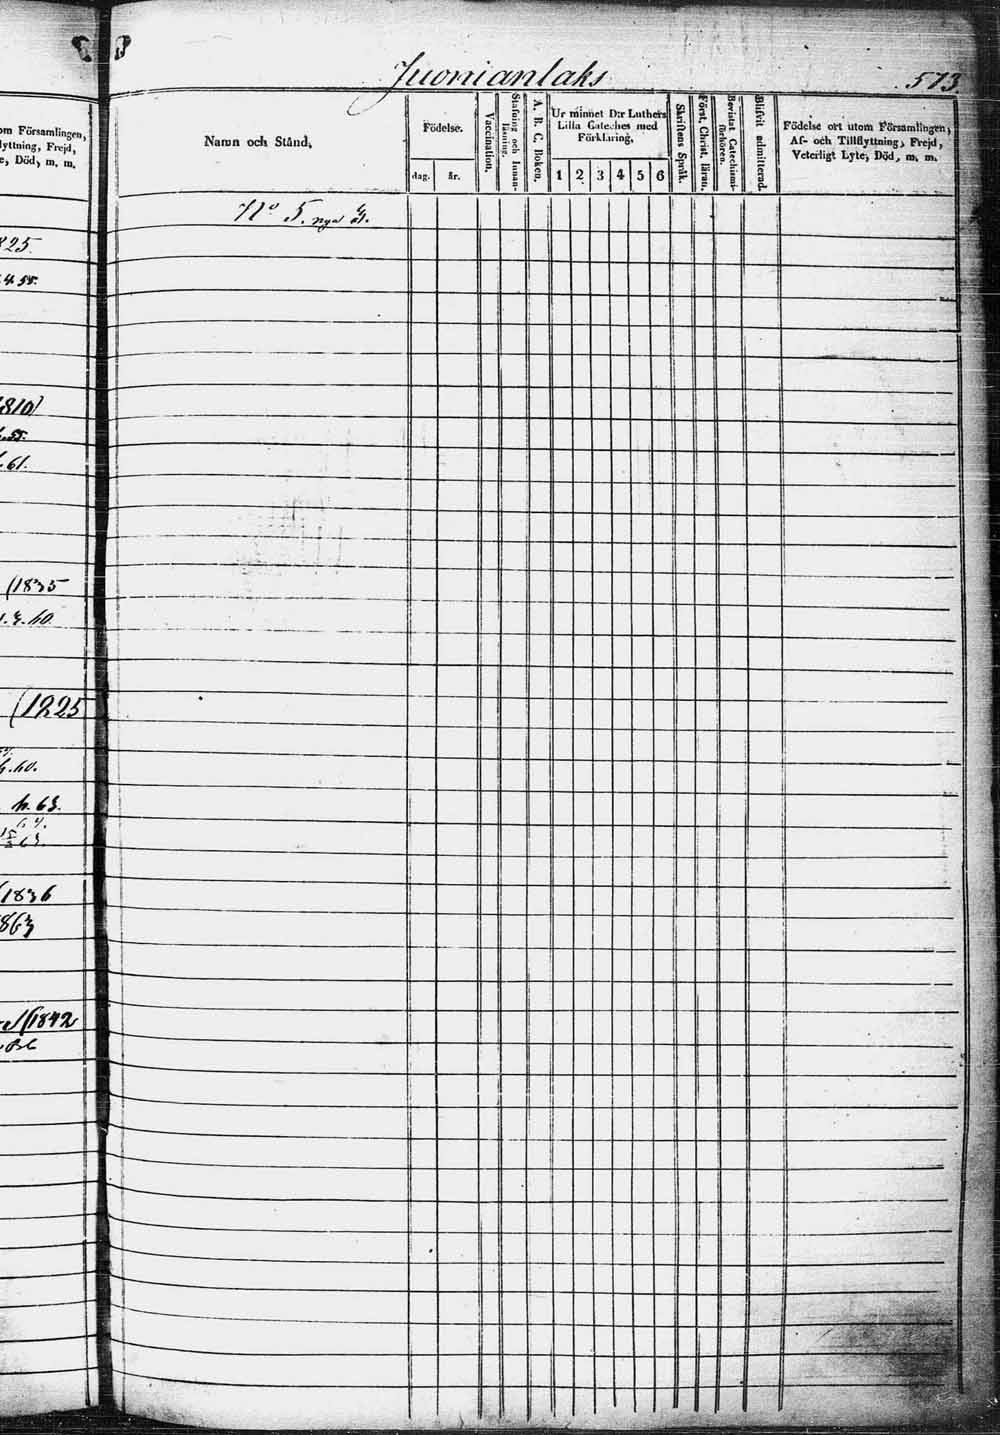 om Församlingen,
lyttning, Frejd,
e, Död, m. m.
825.
4.55.
1810)
.55.
.61.
(1835
1.3.60.
(1225
h.60.
h.63.
63.
(1836
1863
(1842
Juonianlaks
573.
Namn och Stånd,
Födelse.
dag. år.
Vaccination.
Stafning och Innan-
läsning.
A. B. C. Boken.
Ur minnet D:r Luthers
Lilla Cateches med
Förklaring,
1 2 3 4 5 6
Skriftens Språk.
Först. Christ. läran.
Bevistat Catechismi-
förhören.
Blifvit admitterad.
Födelse ort utom Församlingen,
Af- och Tillflyttning, Frejd,
Veterligt Lyte, Död, m. m.
No 5. nya